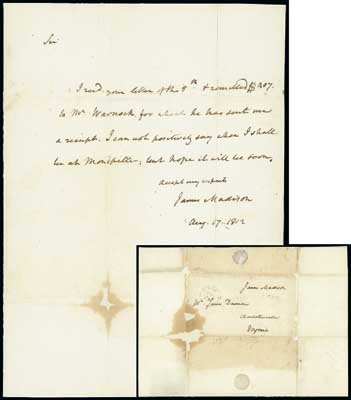 Sir
I recd. your letter of the 5th & remitted $207.
to Mr Warnock, for which he has sent me
a receipt. I can not positively say when I shall
be at Montpellier, but hope it will be soon.
Accept my respects
James Madison
Aug. 17. 1812
James Madison
Mr
Charlottesville
Virginia